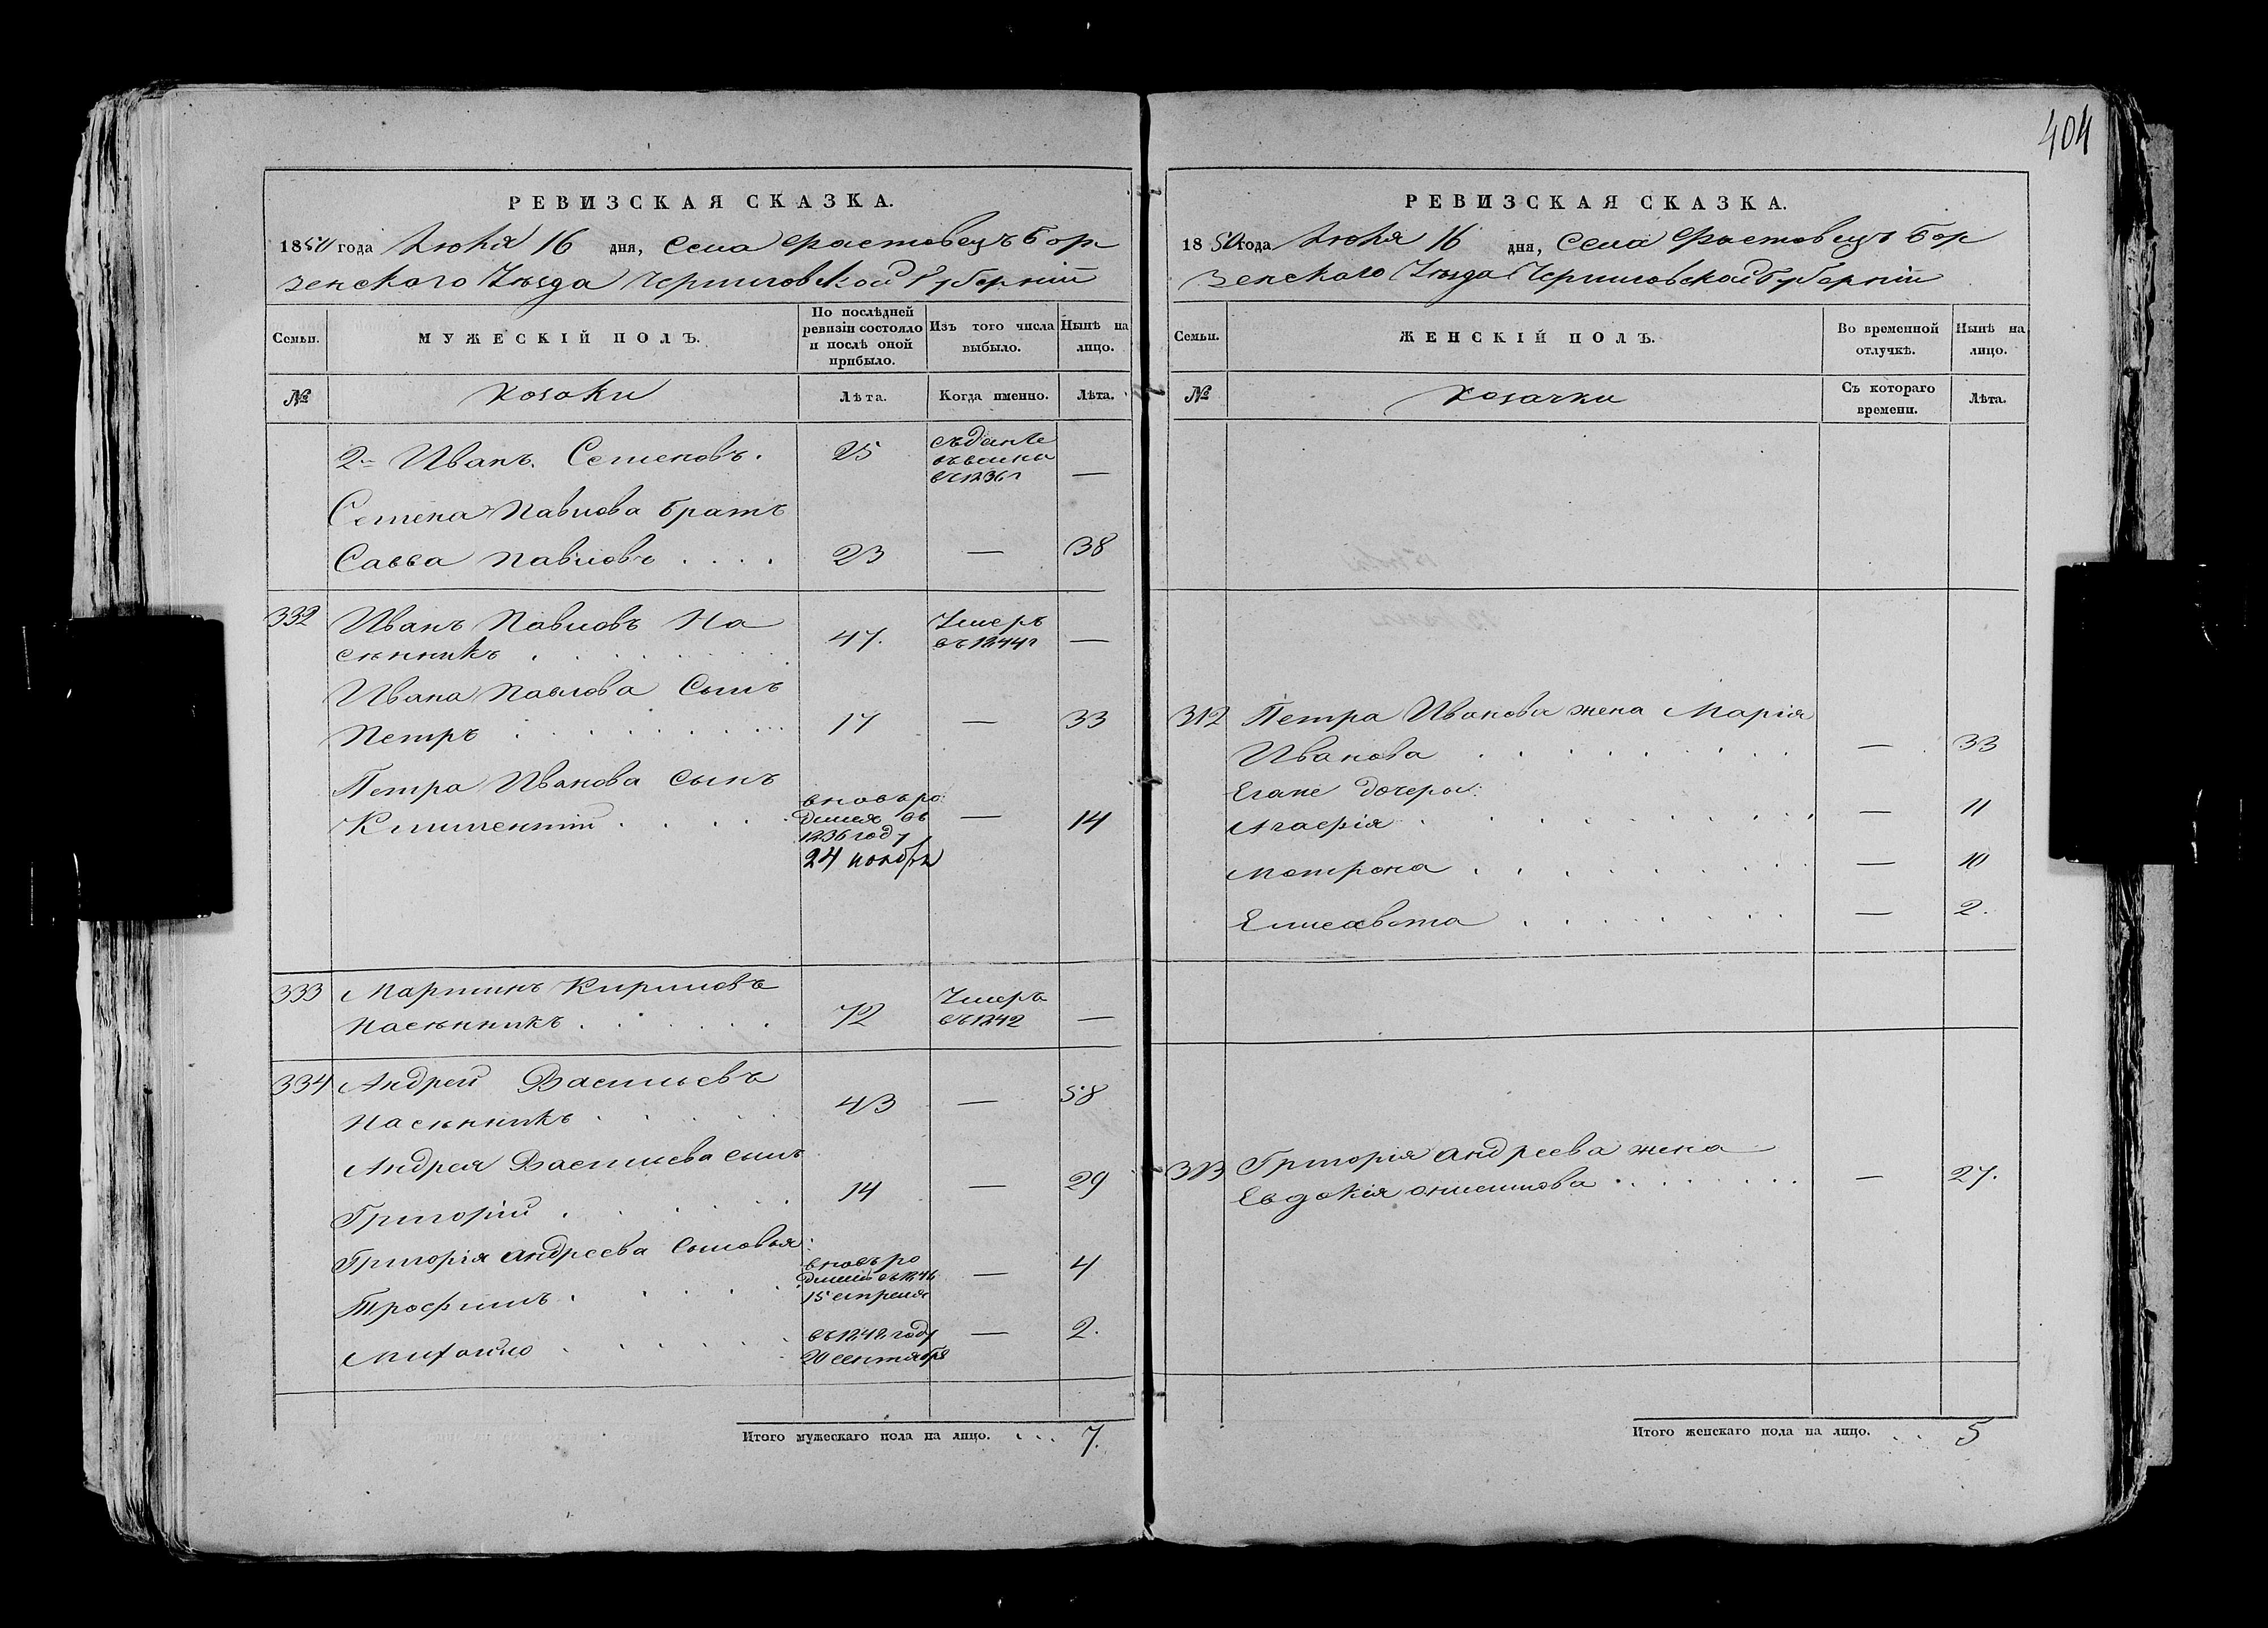 404
РЕВИЗСКАЯ СКАЗКА.
1850 года Июня 16 дня, Села Фастовецъ Бор
зенского Уѣзда Черниговской Губерніи
Семьи. МУЖЕСКІЙ ПОЛЪ. По послѣдней ревизіи состояло и послѣ оной прибыло. Изъ того числа выбыло. Нынѣ на лицо.
№ Козаки Лѣта. Когда именно. Лѣта.
2й Иванъ Семеновъ. 25 въ 1836г —
Семена Павлова братъ
Савва Павловъ . . . . 23 — 38
332 Иванъ Павловъ Па
сѣнникъ . . . . 47. Умеръ въ 1844г —
Ивана Павлова Сынъ
Петръ . . . . 17 — 33
Петра Иванова Сынъ
Климентій . . . . вновь ро
дился въ
1836 году
24 ноября — 14
333 Мартинъ Кириловъ
Пасѣнникъ . . . . 72 Умеръ въ 1842 —
334 Андрей Васильевъ
Пасѣнникъ . . . . 43 — 58
Андрея Васильева сынъ
Григорій . . . . 14 — 29
Григорія Андреева Сыновья:
Трофимъ . . . . вновь ро
дился въ 1846
15 апреля — 4
Михайло . . . . въ 1848 году
20 сентября — 2.
Итого мужескаго пола на лицо. . . . 7.
РЕВИЗСКАЯ СКАЗКА.
1850 года Июня 16 дня, Села Фастовецъ Бор
зенского Уѣзда Черниговской Губерніи
Семьи. ЖЕНСКІЙ ПОЛЪ. Во временной отлучкѣ. Нынѣ на лицо.
№ Козачки Съ котораго времени. Лѣта.
312 Петра Иванова жена Марія
Иванова . . . . — 33
Егоже дочеры:
Агафія . . . . — 11
Мотрона . . . . — 10
Елисавета . . . . — 2.
313 Григорія Андреева жена
Евдокія Онисимова . . . . — 27.
Итого женскаго пола на лицо. . . . 5